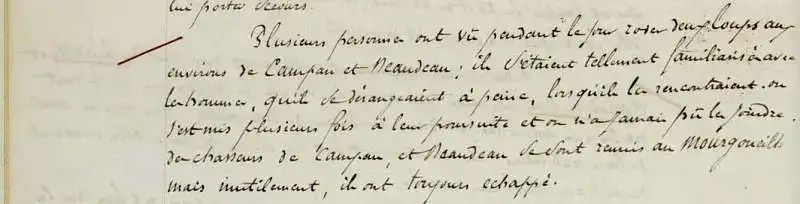 lui porter secours.
Plusieurs personnes ont vu pendant le jour roser deux loups aux
environs de Campan et Beaudean; ils s'étaient tellement familiarisés avec
les hommes, qu'ils se dérangeaient à peine, lorsqu'ils les rencontraient. on
s'est mis plusieurs fois à leur poursuite et on n'a jamais pû les joindre.
des chasseurs de Campan, et Beaudean se sont reunis au Mourgoueilh
mais inutilement, ils ont toujours echappé.